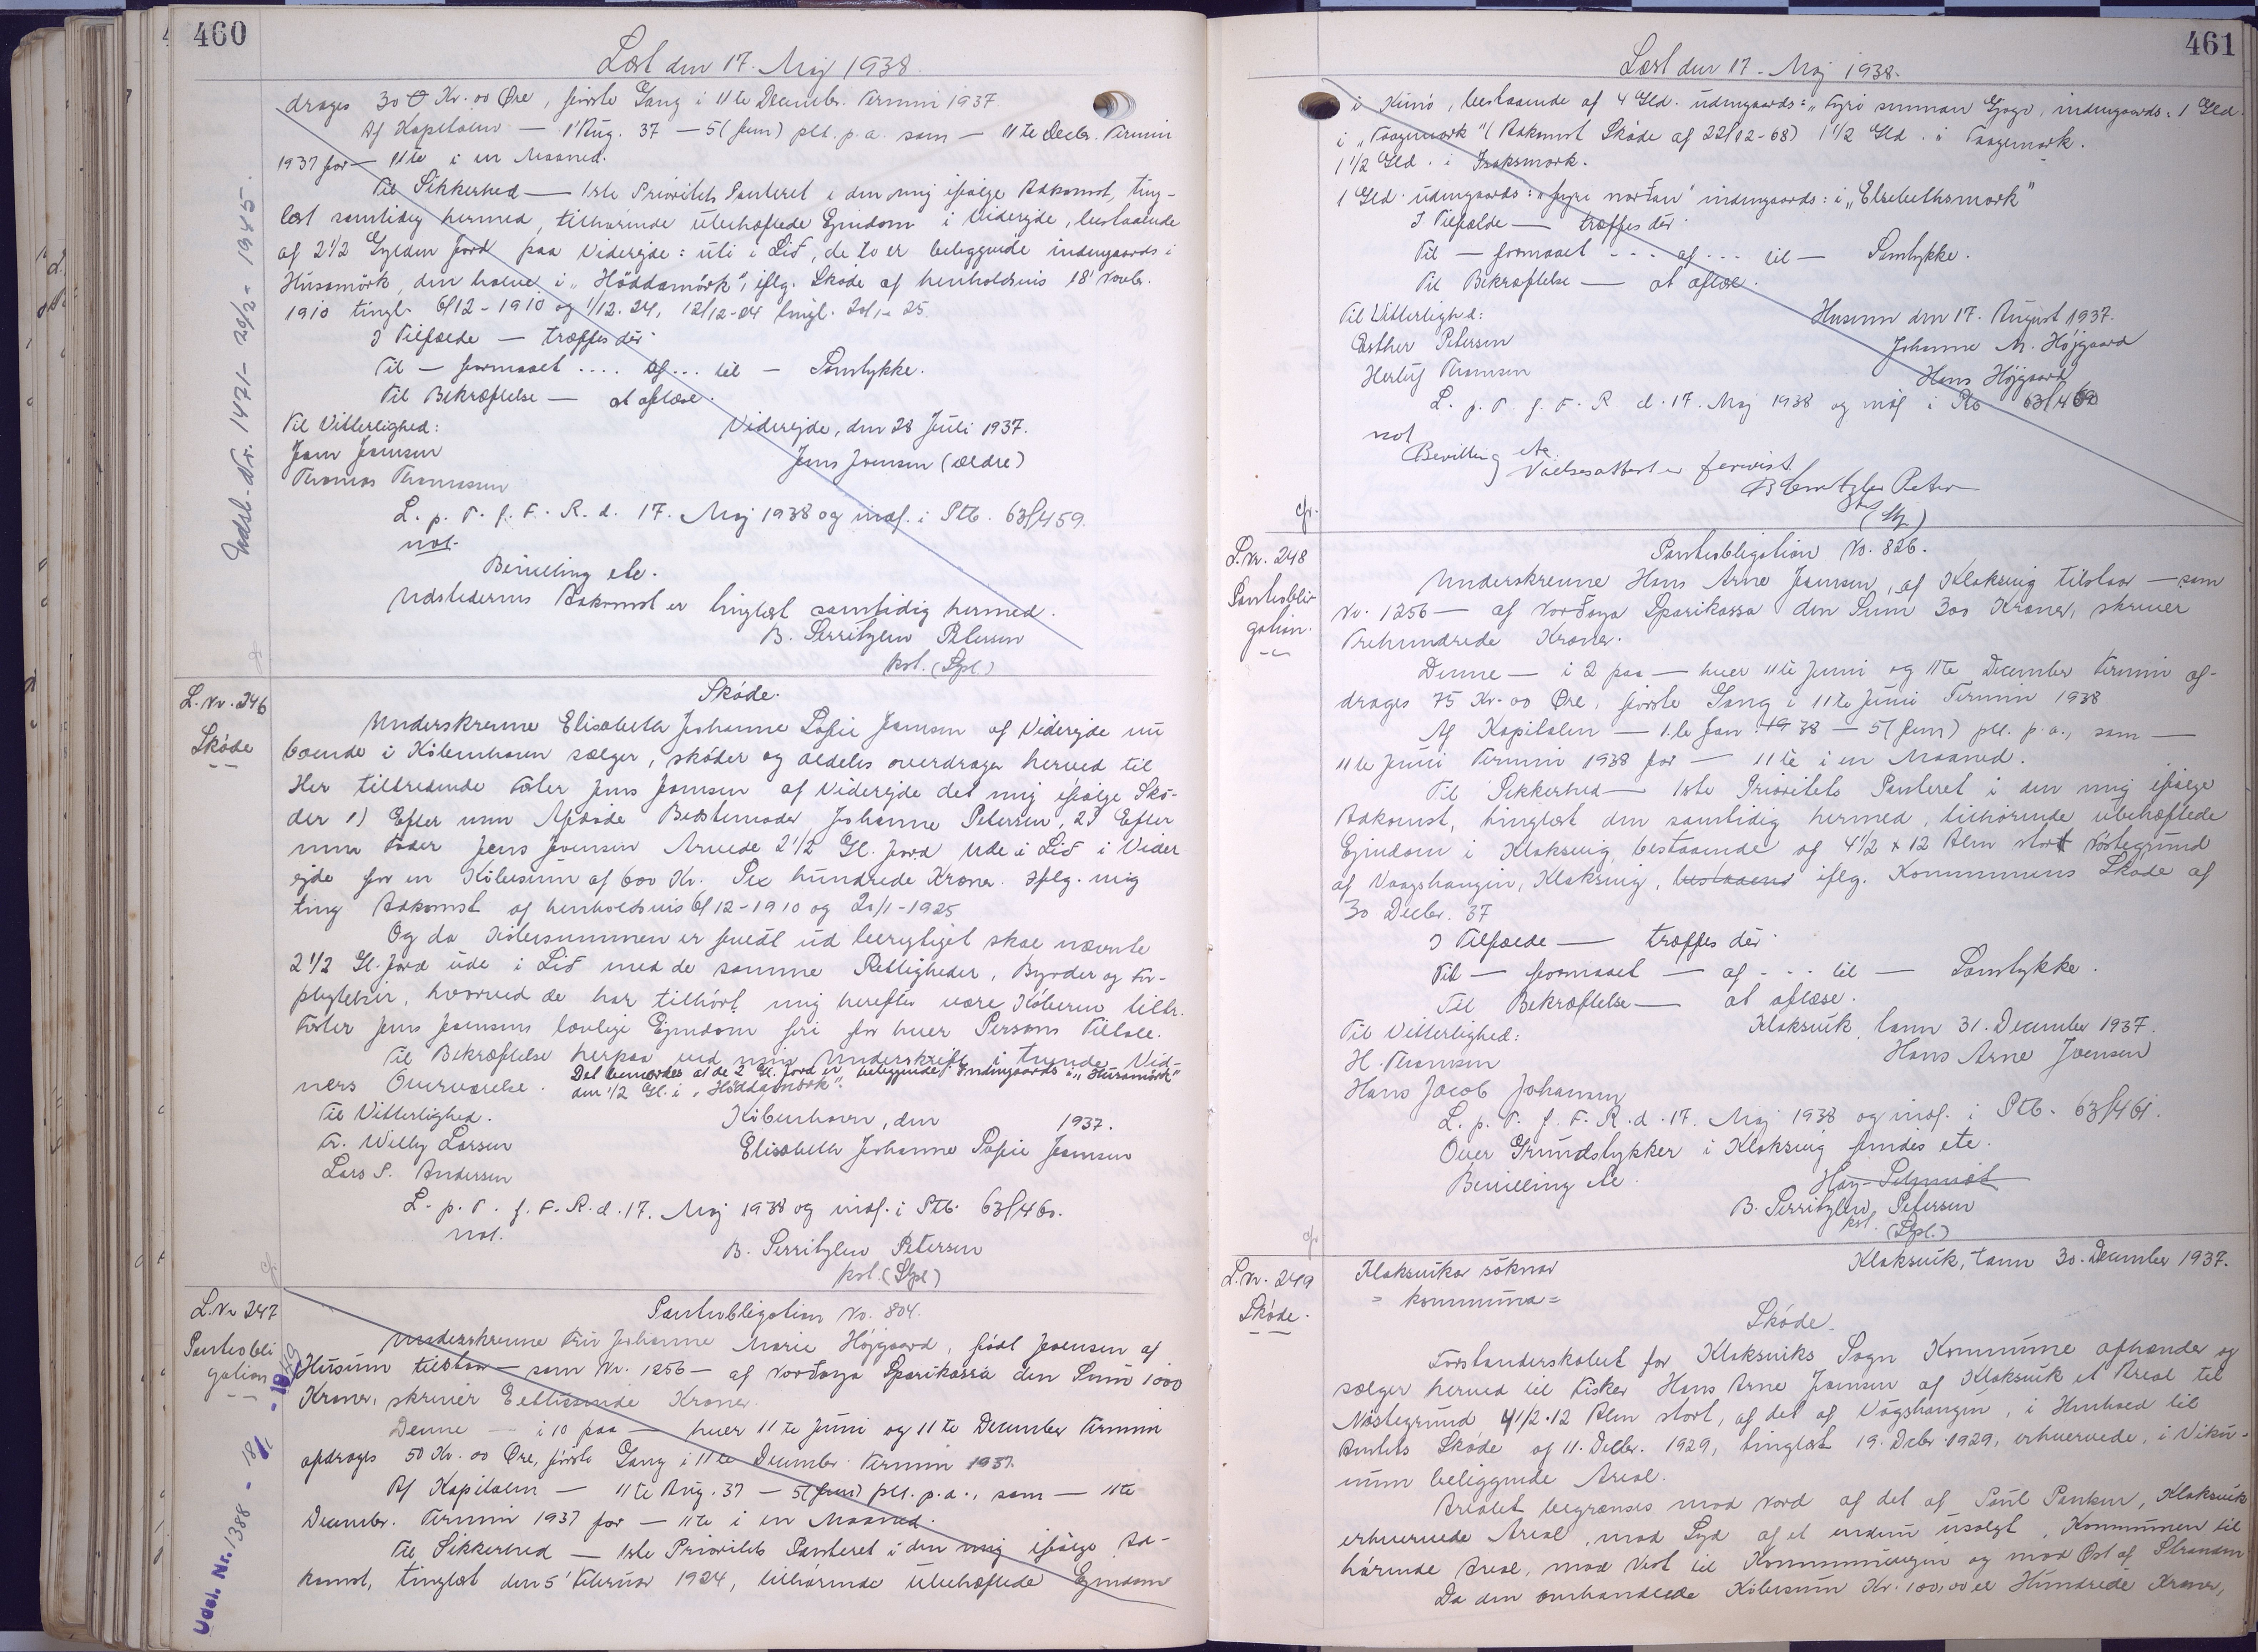 460
Læst den 17. Maj 1938.
drages 300 Kr. 00 Øre, første Gang i 11te Decembr. Termin 1937.
Af Kapitalen — 1' Aug. 37 — 5 (fem) pCt. p.a. som — 11te Decbr. Termin
1937 for — 11te i en Maaned.
Til Sikkerhed — 1ste Prioritets Panteret i den mig ifølge Adkomst, ting-
læst samtidig hermed, tilhørende ubehæftede Ejendom i Viderejde, bestaaende
af 2 1/2 Gylden Jord paa Viderejde: uti i Lið, de to er beliggende indengaards i
Húsamørk, den halve i "Høddamørk", iflg. Skøde af henholdsvis 18' Novbr.
1910 tingl. 6/12-1910 og 1/12.24, 12/12-24 tingl. 20/1-25.
I Tilfælde — træffes dér.
Til — formaaet .... af ... til — Samtykke.
Til Bekræftelse — at aflæse.
Til Vitterlighed:
Viderejde, den 28 Juli 1937.
Joen Joensen
Jens Joensen (ældre)
Thomas Thomassen
L. p. T. f. F. R. d. 17. Maj 1938 og indf. i Ptb. 63/459.
not.
Bevilling etc.
Udstederens Adkomst er tinglæst samtidig hermed.
B. Serritzlew Petersen
kst. (Spl)
Indsl. Nr. 1471 - 20/2 - 1945.
L. Nr. 246
Skøde
Skøde.
Underskrevne Elisabeth Johanne Sofie Joensen af Viderejde nu
boende i København sælger, skøder og aldeles overdrager herved til
Hr tiltredende Fæster Jens Joensen af Viderejde det mig ifølge Skø-
der 1) Efter min Afdøde Bedstemoder Johanne Petersen, 2) Efter
min Fader Jens Joensen Arvede 2 1/2 Gl. Jord ude i Lið i Vider
ejde for en Købesum af 600 Kr. Sex hundrede Kroner. Iflg. mig
ting Adkomst af henholdsvis 6/12-1910 og 20/1-1925
Og da Købesummen er fuldt ud berigtiget skal nævnte
2 1/2 Gl. Jord ude i Lið med de samme Rettigheder, Byrder og For-
pligtelser, hvorved de har tilhørt mig herefter være Køberen tiltr.
Fæster Jens Joensens lovlige Ejendom fri for hver Persons Tiltale.
Til Bekræftelse herpaa ved min Underskrift i tvende Vid-
ners Overværelse. Det bemærkes at de 2 Gl. Jord er beliggende Indengaards i "Húsamørk"
den 1/2 Gl. i "Høddamørk".
Til Vitterlighed.
København, den 1937.
Fr. Willy Larsen
Elisabeth Johanne Sofie Joensen
Lars S. Andersen
L. p. T. f. F. R. d. 17. Maj 1938 og indf. i Ptb. 63/460.
not.
B. Serritzlew Petersen
kst. (Spl)
L. Nr 247
Pantobli
gation
Pantobligation No. 804.
Underskrevne Fru Johanne Marie Højgaard, født Joensen af
Husum tilstaar — som Nr. 1256 — af Norðoya Sparikassa den Sum 1000
Kroner, skriver Eettusinde Kroner.
Denne — i 10 paa — hver 11te Juni og 11te December Termin
afdrages 50 Kr. 00 Øre, første Gang i 11te December Termin 1937.
Af Kapitalen — 11te Aug. 37 — 5 (fem) pCt. p.a., som — 11te
December. Termin 1937 for — 11te i en Maaned.
Til Sikkerhed — 1ste Prioritets Panteret i den mig ifølge Ad-
komst, tinglæst den 5' Februar 1924, tilhørende ubehæftede Ejendom
Udsl. Nr. 1388 - 18/ - 1949
461
Læst den 17. Maj 1938.
i Kunø, bestaaende af 4 Gld. udengaards: "Fyri sunnan Gjógv, indengaards: 1 Gld.
i "Taagemørk" (Adkomst Skøde af 22/02-68) 1 1/2 Gld. i Taagemørk.
1 1/2 Gld. i Isaksmørk.
1 Gld. udengaards: "fyri norðan" indengaards: i "Elsebethsmørk"
I Tilfælde — træffes dér.
Til — formaaet --- af ... til — Samtykke.
Til Bekræftelse — at aflæse.
Til Vitterlighed:
Husum den 17. August 1937.
Esther Petersen
Johanne M. Højgaard
Herluf Thomsen
Hans Højgaard
L. p. T. f. F. R d. 17. Maj 1938 og indf i Ptb 63/460
not
Bevilling etc.
Vielsesattest er forevist
cfr.
L. Nr. 248
Pantobli-
gation.
Pantobligation No. 826.
Underskrevne Hans Arne Joensen, af Klaksvig tilstaar — som
Nr. 1256 — af Norðoya Sparikassa den Sum 300 Kroner, skriver
Trehundrede Kroner.
Denne — i 2 paa — hver 11te Juni og 11te December Termin af-
drages 75 Kr. 00 Øre, første Gang i 11te Juni Termin 1938
Af Kapitalen — 1.te Jan. 1938 — 5 (fem) pCt. p.a., som —
11te Juni Termin 1938 for — 11te i en Maaned.
Til Sikkerhed — 1ste Prioritets Panteret i den mig ifølge
Adkomst, tinglæst den samtidig hermed, tilhørende ubehæftede
Ejendom i Klaksvig, bestaaende af 4 1/2 x 12 Alen stort Nøstegrund
af Vaagshaugin, Klaksvig, bestaaend iflg. Kommunens Skøde af
30 Decbr. 37
I Tilfælde — træffes dér.
Til — formaaet — af --- til — Samtykke.
Til Bekræftelse — at aflæse.
Til Vitterlighed:
Klaksvík, tann 31. December 1937.
H. Thomsen
Hans Arne Joensen
Hans Jacob Johansen
L. p. T. f. F. R. d. 17. Maj 1938 og indf. i Ptb. 63/461.
Over Grundstykker i Klaksvig findes etc.
Bevilling etc.
B. Serritzlew Petersen
kst. (Spl.)
cfr
L. Nr. 249
Skøde.
Klaksvíkar sóknar
= kommuna =
Klaksvík, tann 30. December 1937.
Skøde.
Forstanderskabet for Klaksviks Sogn Kommune afhænder og
sælger herved til Fisker Hans Arne Joensen af Klaksvík et Areal til
Nøstegrund 4 1/2 . 12 Alen stort, af det af Vágshaugin, i Henhold til
Amtets Skøde af 11. Decbr. 1929, tinglæst 19. Decbr. 1929, erhvervede, i Viku-
num beliggende Areal.
Arealet begrænses mod Nord af det af Poul Poulsen, Klaksvík
erhvervede Areal, mod Syd af et endnu usolgt, Kommunen til
hørende Areal, mod Vest til Kommunevejen og mod Øst af Stranden
Da den omhandlede Købesum Kr. 100,00 er Hundrede Kroner,